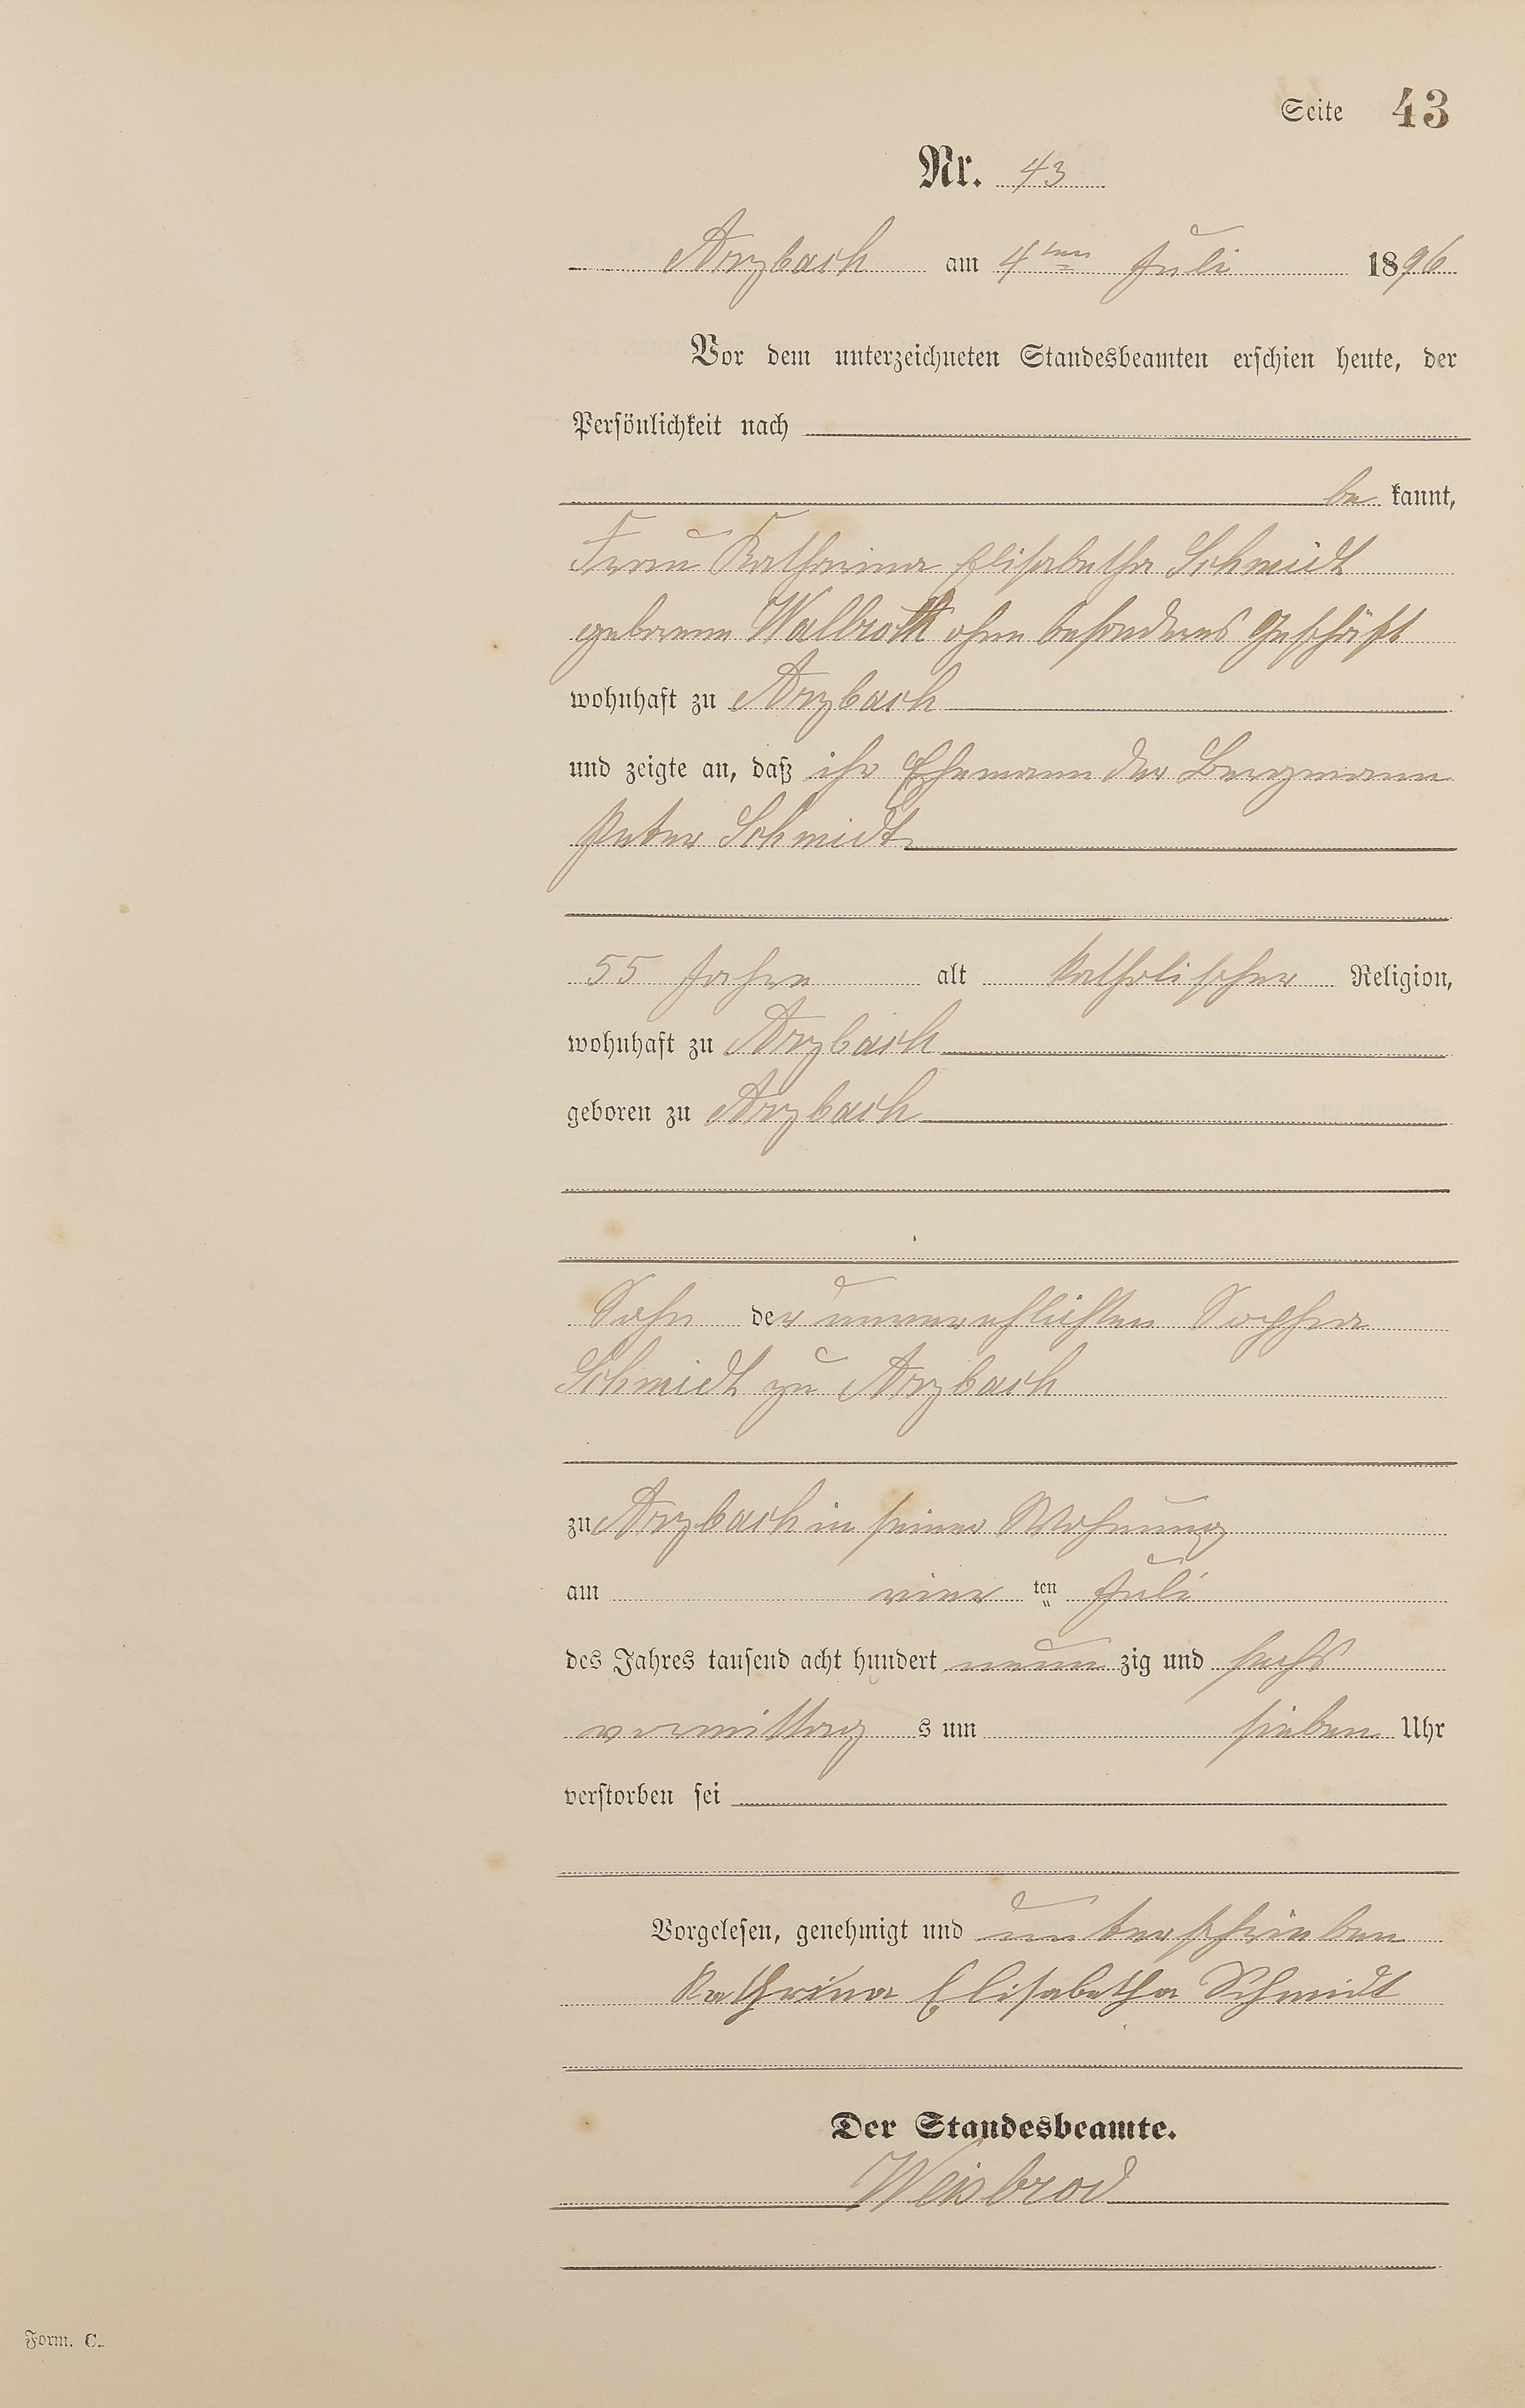 Seite 43
Nr. 43
Arzbach am 4ten Juli 1896
Vor dem unterzeichneten Standesbeamten erschien heute, der
Persönlichkeit nach
be kannt,
Frau Katharina Elisabetha Schmidt
geborene Wallroth ohne besonderes Geschäft
wohnhaft zu Arzbach
und zeigte an, daß ihr Ehemann der Bergmann
Peter Schmidt
55 Jahre alt katholischer Religion,
wohnhaft zu Arzbach
geboren zu Arzbach
Sohn der unverehlichten Sophia
Schmidt zu Arzbach
zu Arzbach in seiner Wohnung
am vier ten Juli
des Jahres tausend acht hundert neun zig und sechs
vormittag s um sieben Uhr
verstorben sei
Vorgelesen, genehmigt und unterschrieben
Kathrina Elisabetha Schmidt
Der Standesbeamte.
Weisbrod
Form. C.